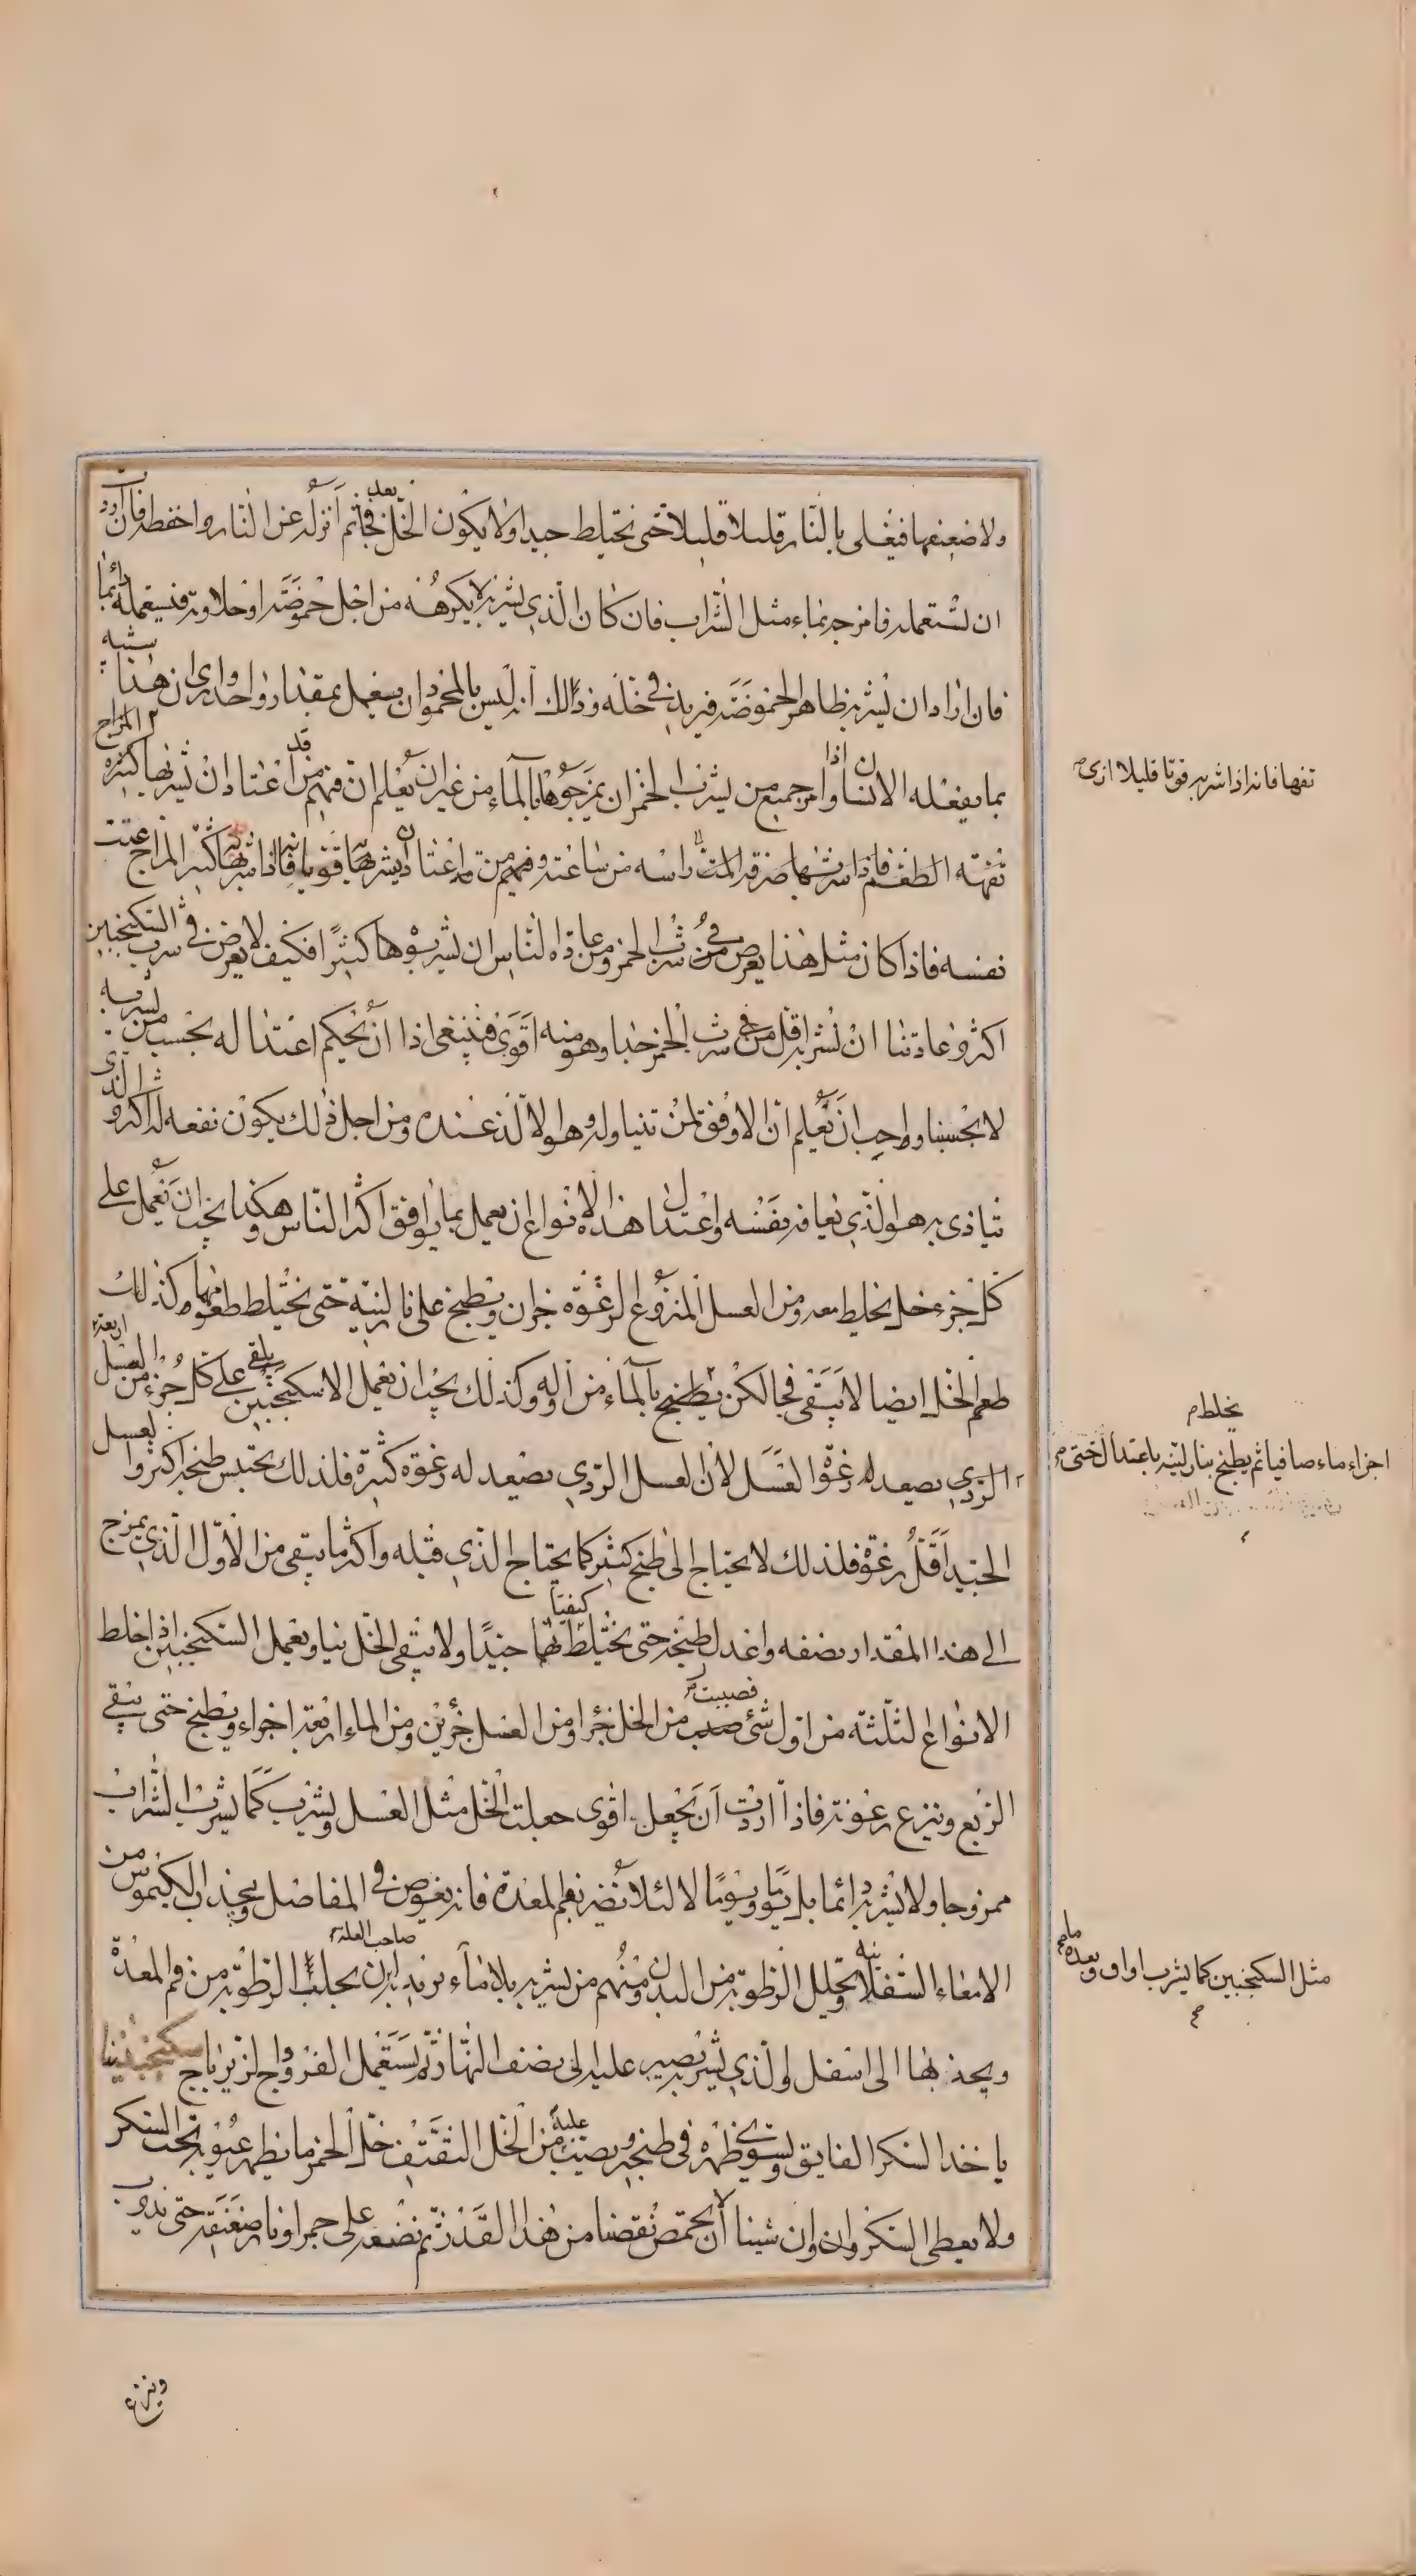 ولاضعفها فيغلى بالنار قليلا قليلا حتى تختلط جيدا ولا يكون الخل فجا ثم انزله عن النار واحفظه فان اردت
ان تستعمله فامزجه بماء مثل الشراب فان كان الذي يشربه لا يكرهه من اجل حموضته او حلاوته فيستعمله دائما
فان اراد ان يشربه ظاهر الحموضة فيزيد في خله وذلك انه ليس بالمحمود ان يعمل بمقدار واحد وارى ان هذا يشبه
بما يفعله الانسان اذا امر جميع من يشرب الخمر ان يمزجوها بالماء من غير ان يعلم ان فمنهم من قد اعتاد ان يشربها كثيرة المزاج
تفهة الطعم فاذا شربها صرفة المت راسه من ساعته ومنهم من قد اعتاد ان يشربها قوية فانه اذا شربها كثير المزاج غثت
نفسه فاذا كان مثل هذا يعرض في من شرب الخمر ومن عادة الناس ان يشربوها كثيرًا فكيف لا يعرض في شرب السكنجبين
اكثر وعادتنا ان نشربه اقل من شرب الخمر جدا وهو منه اقوى فينبغي اذا ان نحكم اعتداله بحسب من يشربه
لا بحسبنا وواجب ان نعلم ان الاوفق لمن تناوله هو الالذ عنده ومن اجل ذلك يكون نفعه له اكثر والذى
يتاذى به هو الذي تعافه نفسه واعتدال هذا الانواع ان يعمل بما يوافق اكثر الناس وهكذا يجب ان نعمل على
كل جزء خل يخلط معه ومن العسل المنزوع الرغوة جزان ويطبخ على نار لينة حتى يختلط طعمهما وكذلك
طعم الخل ايضا لا يبقى فجا لكن يطبخ بالماء من اوله وكذلك يجب ان نعمل الاسكنجبين يلقى على كل جزء من العسل اربعة
الردي يصعد له رغوة العسل لان العسل الردي يصعد له رغوة كثيرة فلذلك يحتبس طبخه اكثر والعسل
الجيد اقل رغوة فلذلك لا يحتاج الى طبخ كثير كما يحتاج الذي قبله واكثر ما يبقى من الاول الذي يمزج
الى هذا المقدار نصفه واعدل طبخه حتى يختلط كيفيتاهما جيدًا ولا يبقى الخل نيا ويعمل السكنجبين اذا خلط
الانواع الثلثة من اول شئ فصببت من الخل جزءا ومن العسل جزئين ومن الماء اربعة اجزاء ويطبخ حتى يبقى
الربع وتنزع رغوته فاذا اردت ان تجعله اقوى جعلت الخل مثل العسل ويشرب كما يشرب الشراب
ممزوجا ولا يشربه دائما بل يومًا ويومًا لا لئلا يضر بفم المعدة فانه يغوص في المفاصل ويجذب الكيموس من
الامعاء السفلانية ويحلل الرطوبة من البدن ومنهم من يشربه بلا ماء يريد بان يجلب الرطوبة من فم المعدة صاحب العلة
ويجذبها الى اسفل والذي يشربه يصبر عليه الى نصف النهار ثم يستعمل الفروج الزيرباج سكنجبيننا
ياخذ السكر الفايق ويسوى ظهره في طنجير ويصب عليه من الخل الثقيف خل الخمر ما يظهر عيونه تحت السكر
ولا يعطى السكر وان وان شينا ان يحمض نقصنا من هذا القدر ثم نضعه على جمر او نار ضعيفة حتى يذوب
وينزع
تفها فانه اذا شربه قوتا قليلا اذى
يخلط م
اجزاء ماء صافيا ثم يطبخ بنار لينة باعتدال حتى
مثل السكنجبين كما يشرب او اوق وبعده ماء